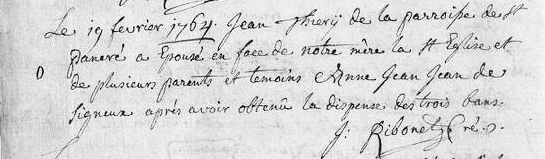 Le 19 fevrier 1764. Jean Thierÿ de la parroisse de St
pancré a Epousé en face de notre mère la St Eglise et
de plusieurs parents et temoins Anne Jean Jean de
signeux aprés avoir obtenû la dispense des trois bans.
J: Ribonet